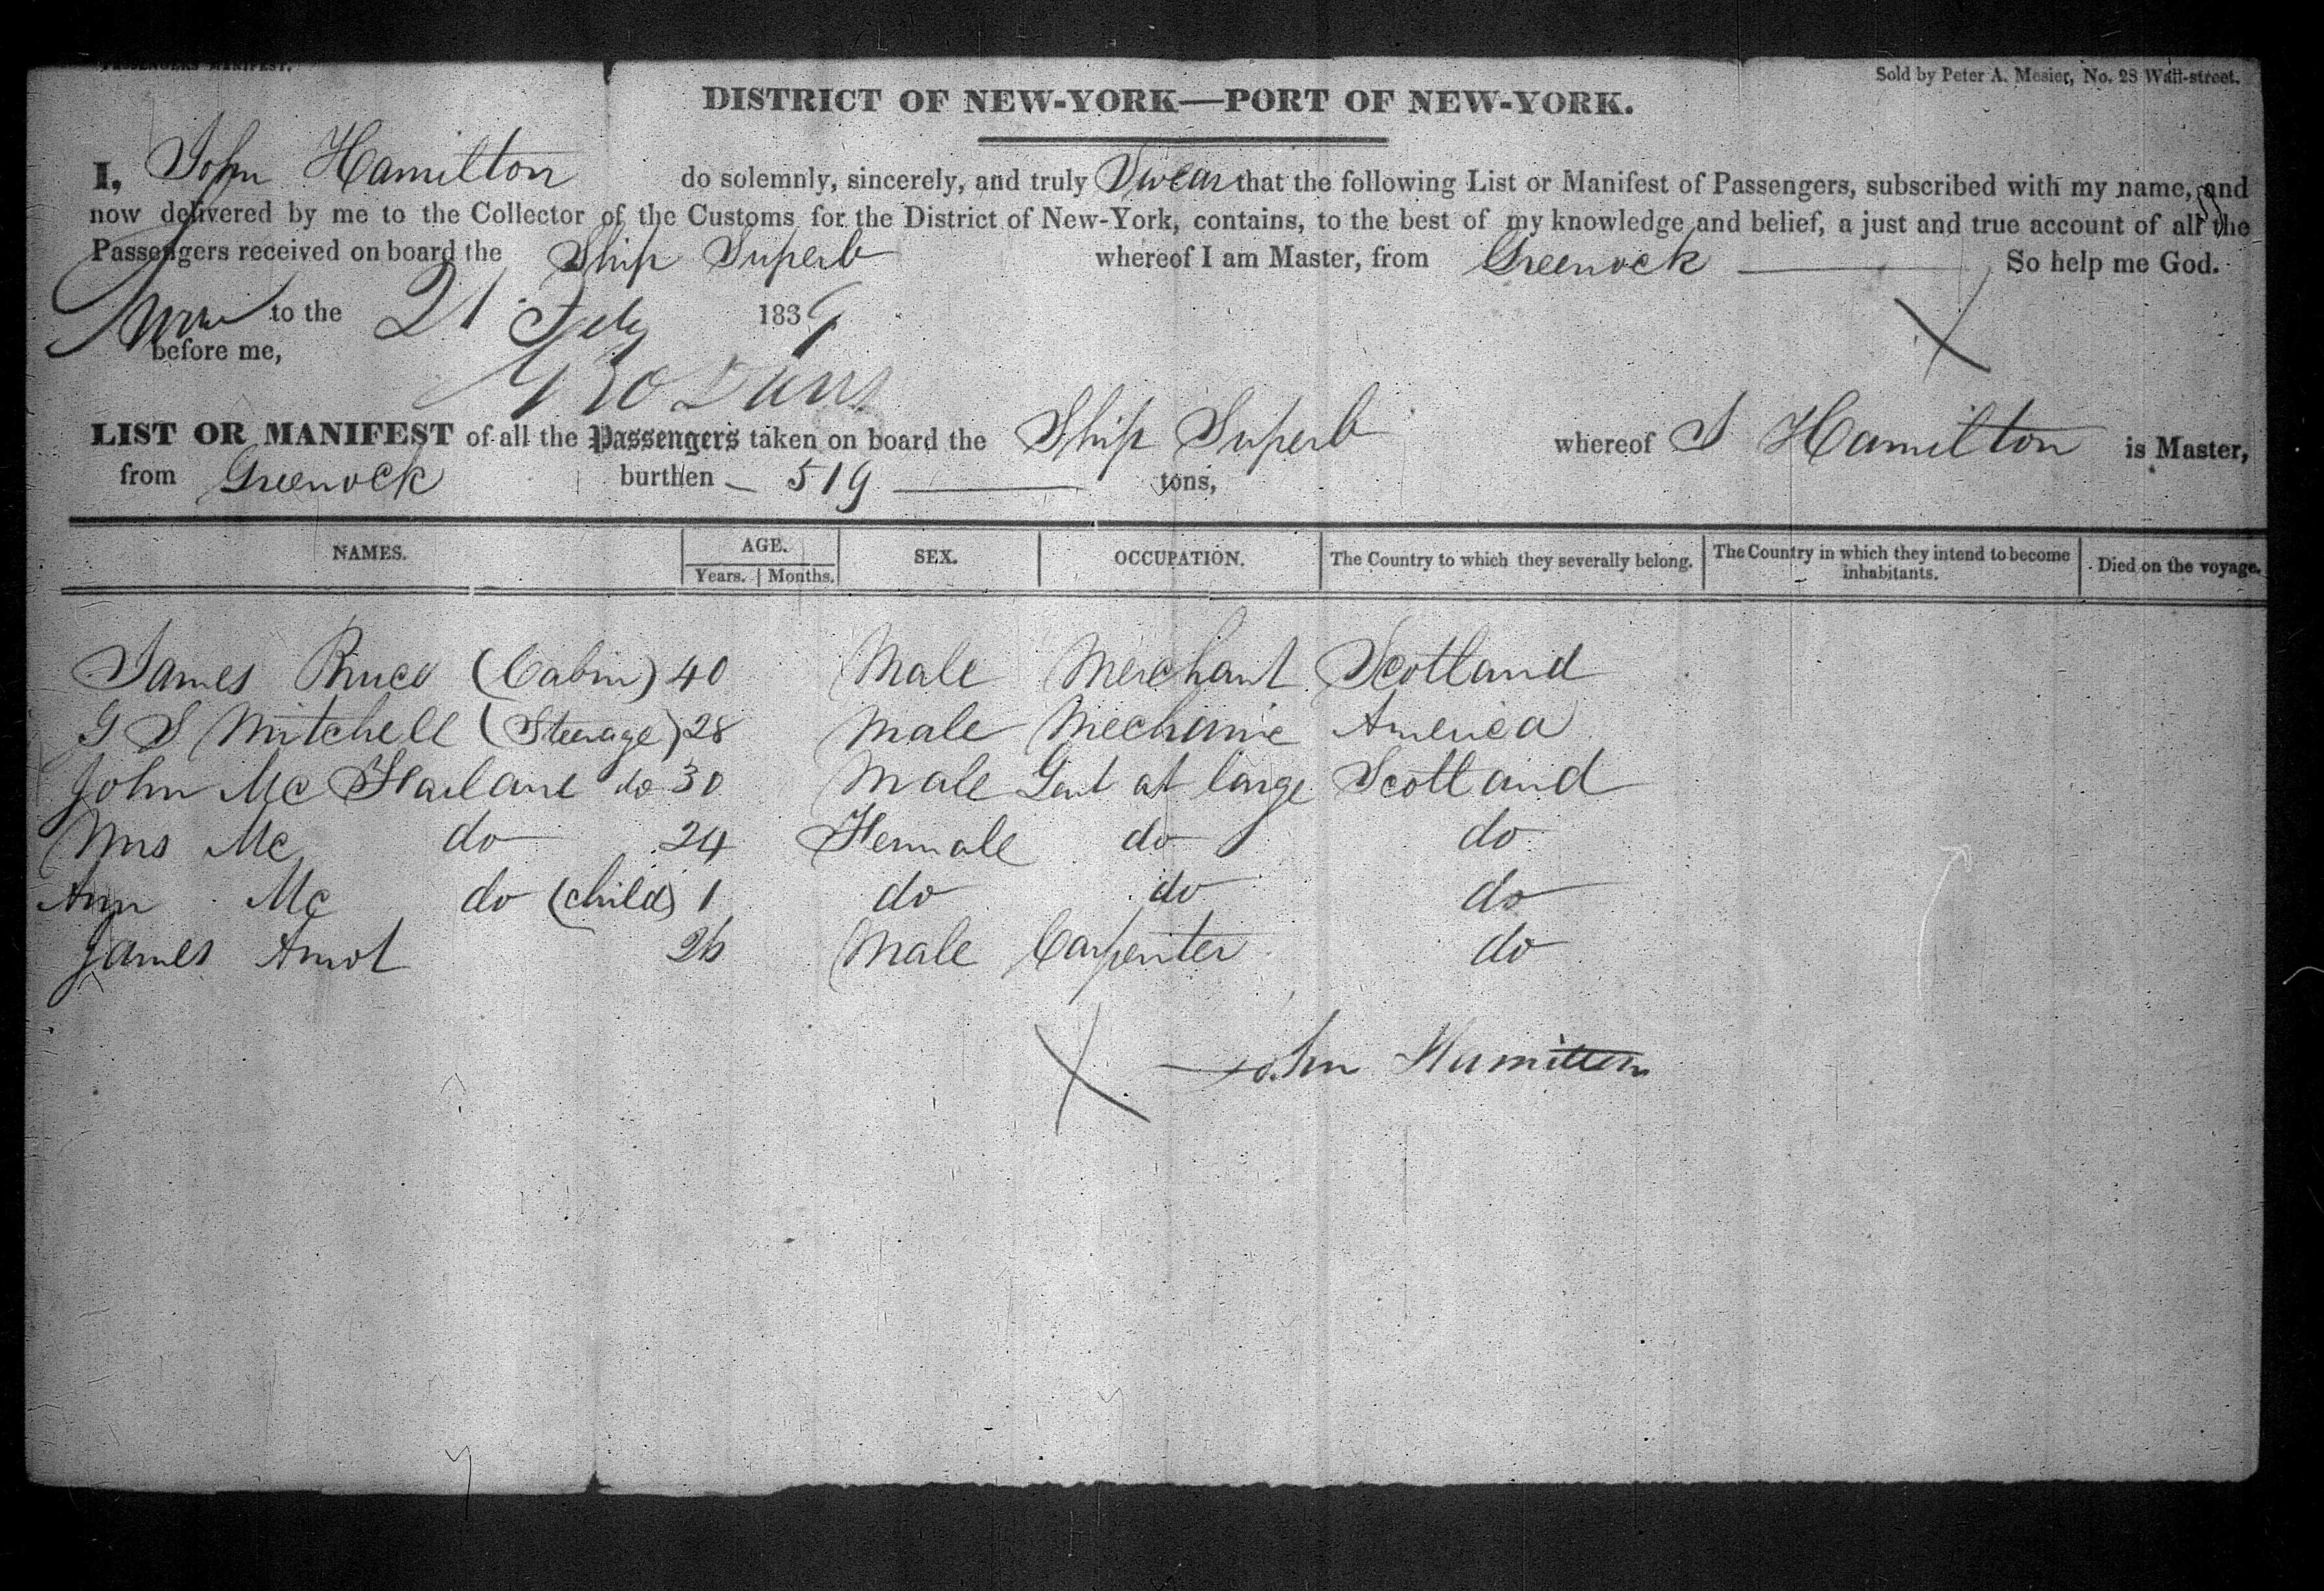 PASSENGERS MANIFEST.
Sold by Peter A. Mesier, No. 28 Wall-street.
DISTRICT OF NEW-YORK—PORT OF NEW-YORK.
I, John Hamilton do solemnly, sincerely, and truly Swear that the following List or Manifest of Passengers, subscribed with my name, and
now delivered by me to the Collector of the Customs for the District of New-York, contains, to the best of my knowledge and belief, a just and true account of all the
Passengers received on board the Ship Superb whereof I am Master, from Greenock So help me God.
to the 21 Feby 1839
before me,
LIST OR MANIFEST of all the Passengers taken on board the Ship Superb whereof J Hamilton is Master,
from Greenock burthen 519 tons,
NAMES. AGE. Years. Months. SEX. OCCUPATION. The Country to which they severally belong. The Country in which they intend to become inhabitants. Died on the voyage.
James Bruce (Cabin) 40 Male Merchant Scotland
G S Mitchell (Steerage) 28 Male Mechanic America
John Mc Farlane do 30 Male Gent at large Scotland
Mrs Mc do 24 Female do do
Ann Mc do (child) 1 do do do
James Arnot 26 Male Carpenter do
John Hamilton